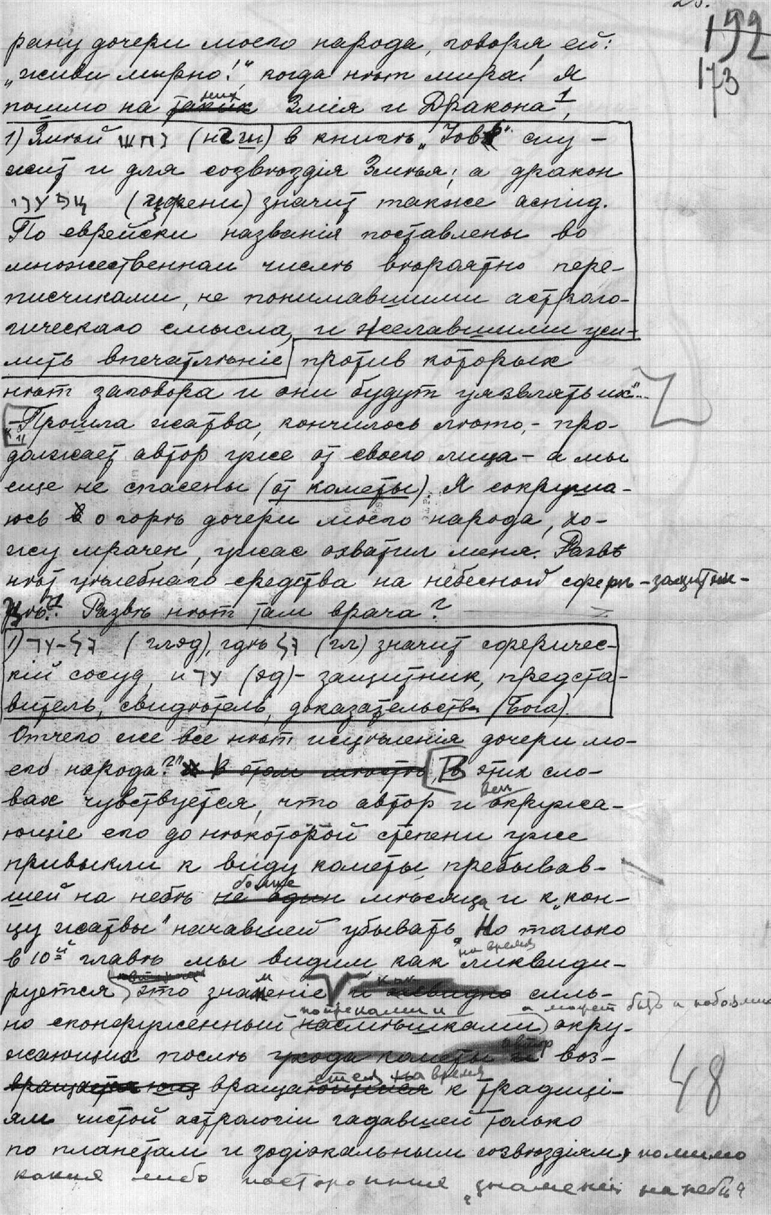 192
173
рану дочери моего народа, говоря ей:
„живи мирно!", когда нѣт мира! Я
пошлю на них Змія и Дракона 1,
1) Змѣй נחש (нхш) в книгѣ „Іов" слу-
жит и для созвѣздія Змѣя; а дракон
צפעני (цфени) значит также аспид.
По еврейски названія поставлены во
множественном числѣ вѣроятно пере-
писчиками, не понимавшими астроло-
гическаго смысла, и желавшими уси-
лить впечатлѣніе
против которых
нѣт заговора и они будут уязвлять их"...
„Прошла жатва, кончилось лѣто,- про-
должает автор уже от своего лица - а мы
еще не спасены (от кометы). Я сокруша-
юсь о горѣ дочери моего народа, хо-
жу мрачен, ужас охватил меня. Развѣ
нѣт цѣлебнаго средства на небесной сферѣ-защитни-
цѣ? 1) Развѣ нѣт там врача?
1) גל-עד (гл-эд), гдѣ גל (гл) значит сферичес-
кій сосуд и עד (эд)- защитник, предста-
витель, свидѣтель, доказательства (Бога).
Отчего же все нѣт исцѣленія дочери мо-
его народа?" В этих сло-
вах чувствуется, что автор и окружа-
ющіе его до нѣкоторой степени уже
привыкли к виду кометы, пребывав-
шей на небѣ больше мѣсяца и к „кон-
цу жатвы" начавшей убывать. Но только
в 10-й главѣ мы видим как на время ликвиди-
руется это знаменіе и как силь-
но сконфуженный насмѣшками окру-
жающих послѣ автор воз-
вращается на время к традиці-
ям чистой астрологіи гадавшей только
по планетам и зодіакальным созвѣздіям, помимо
каких либо посторонних „знаменій на небѣ"
48